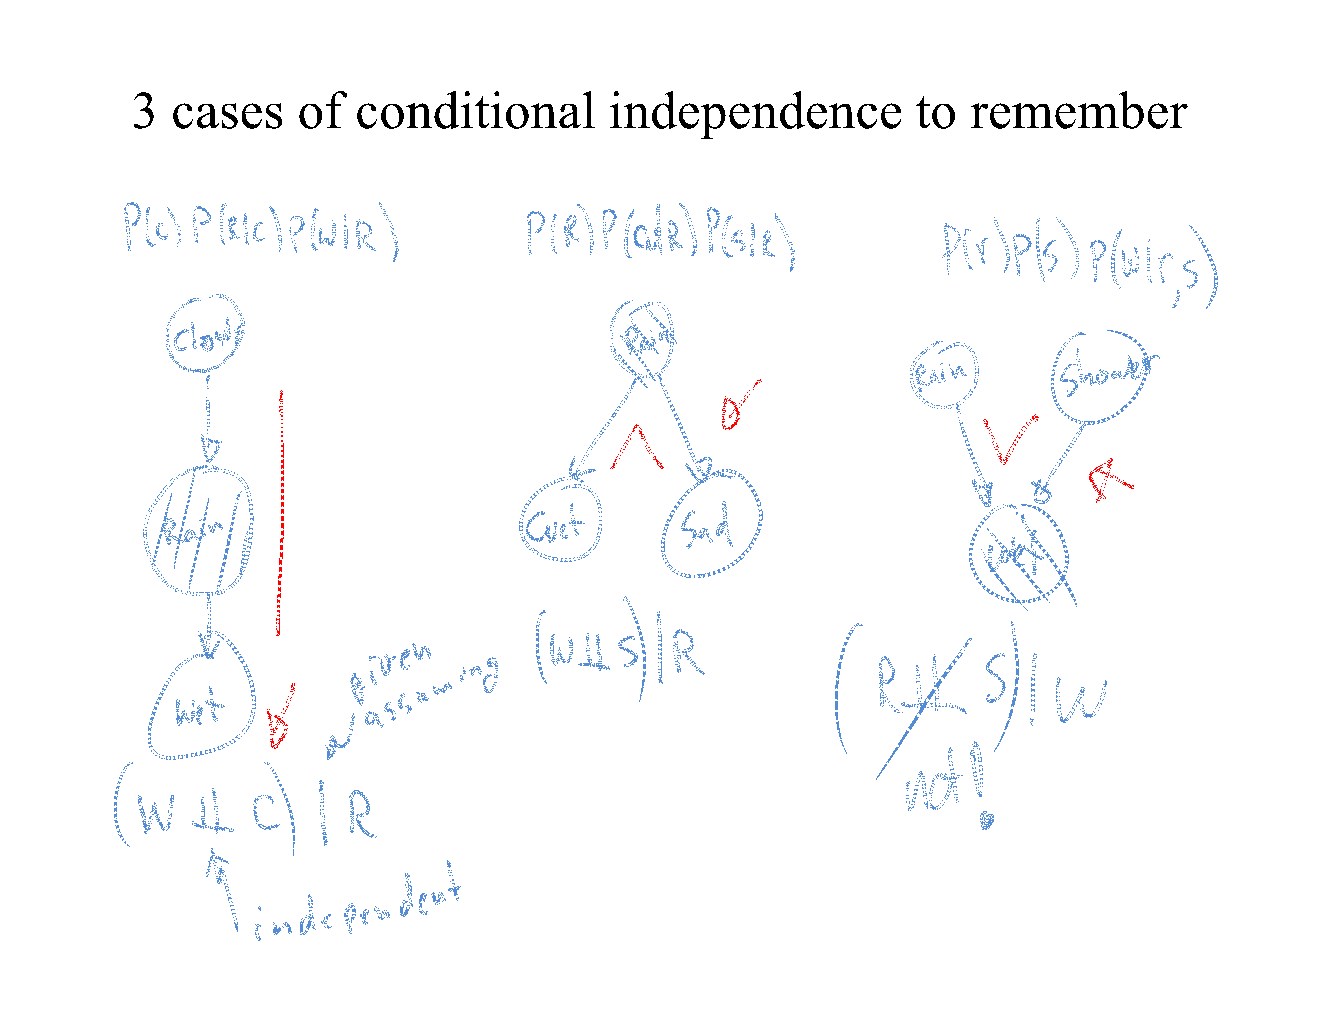 3 cases of conditional independence to remember
P(c) P(R|c) P(W|R)
Cloud
Rain
Wet
(W ⫫ C) | R
given
assuming
independent
P(R) P(W|R) P(S|R)
Rain
Wet
Sad
(W ⫫ S) | R
P(r) P(s) P(w|r,s)
Rain
Shower
Wet
(R ⫫̸ S) | W
not!